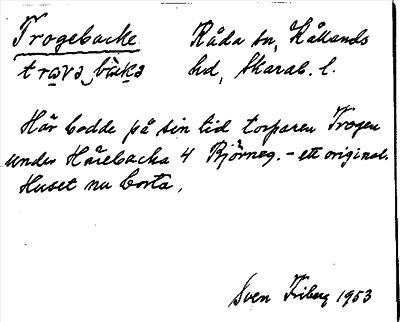 Trogebacke Råda sn, Kållands
trɷvə bàkə hd, Skarab. l.
Här bodde på sin tid torparen Trogen
under Hårebacka 4 Björneg. – ett original.
Huset nu borta.
Sven Friberg 1953